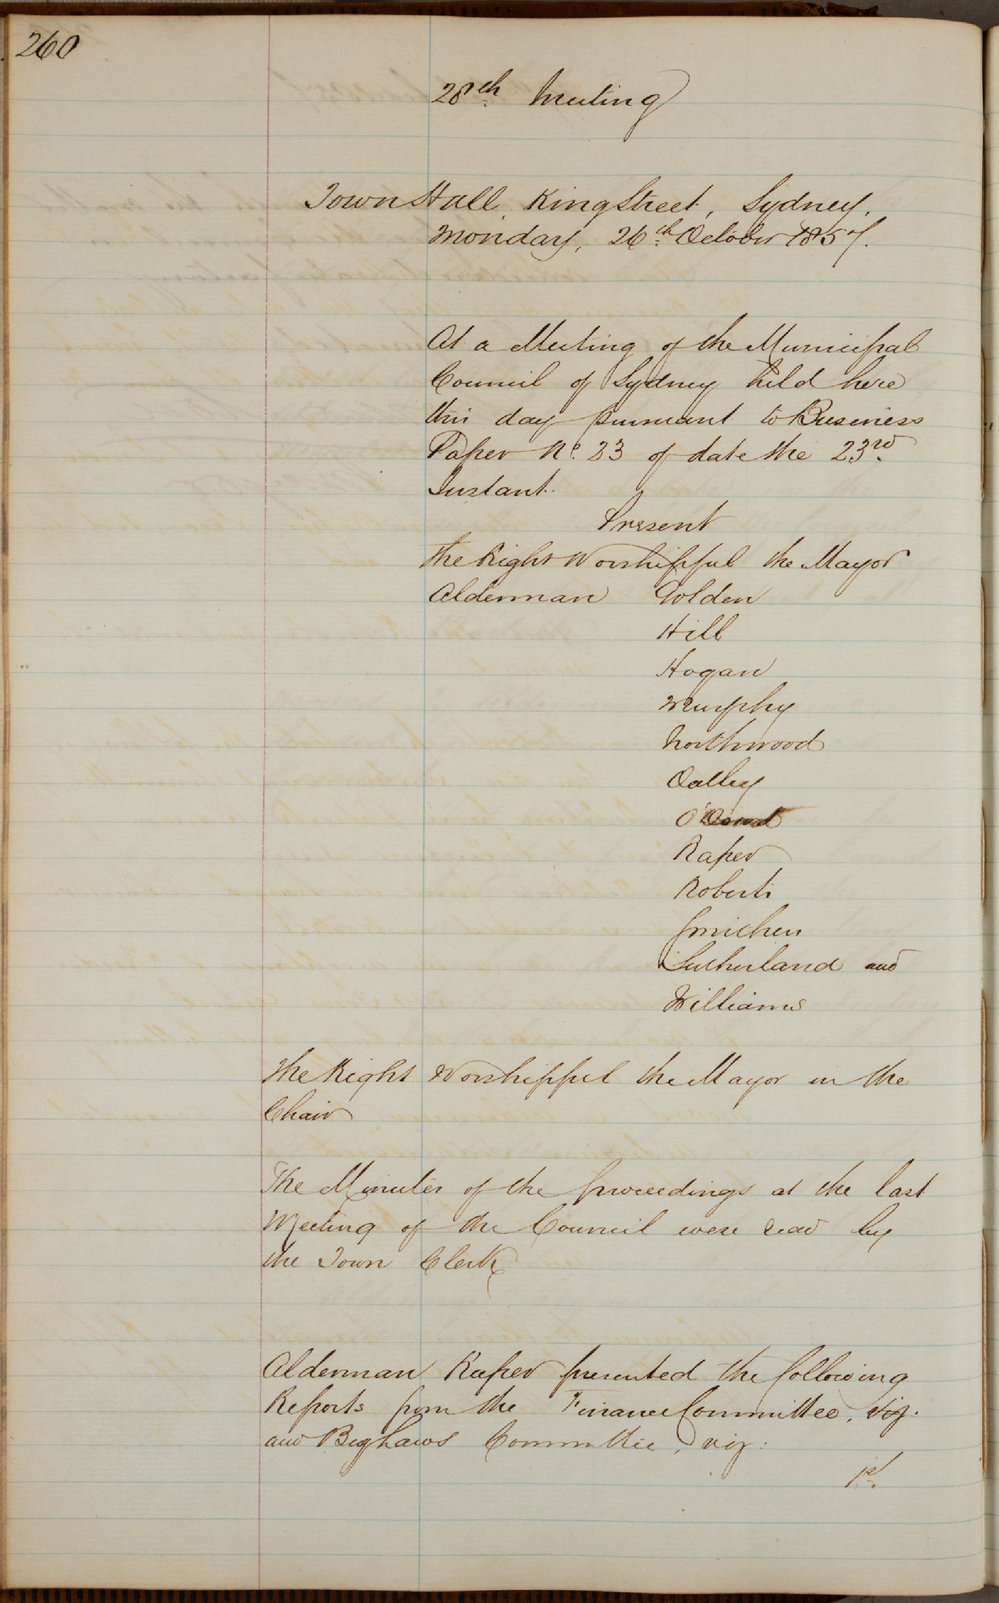 260
28th Meeting
Town Hall, King Street, Sydney,
Monday, 26th October 1857.
At a Meeting of the Municipal
Council of Sydney held here
this day pursuant to Business
Paper No. 33 of date the 23rd
Instant.
Present
The Right Worshipful the Mayor
Alderman Golden
Hill
Hogan
Murphy
Northwood
Oatley
Raper
Roberts
Smithers
Sutherland and
Williams
The Right Worshipful the Mayor in the
Chair
The Minutes of the proceedings at the last
Meeting of the Council were read by
the Town Clerk
Alderman Raper presented the following
Reports from the Finance Committee, viz.
and Bye Laws Committee, viz:
1st.